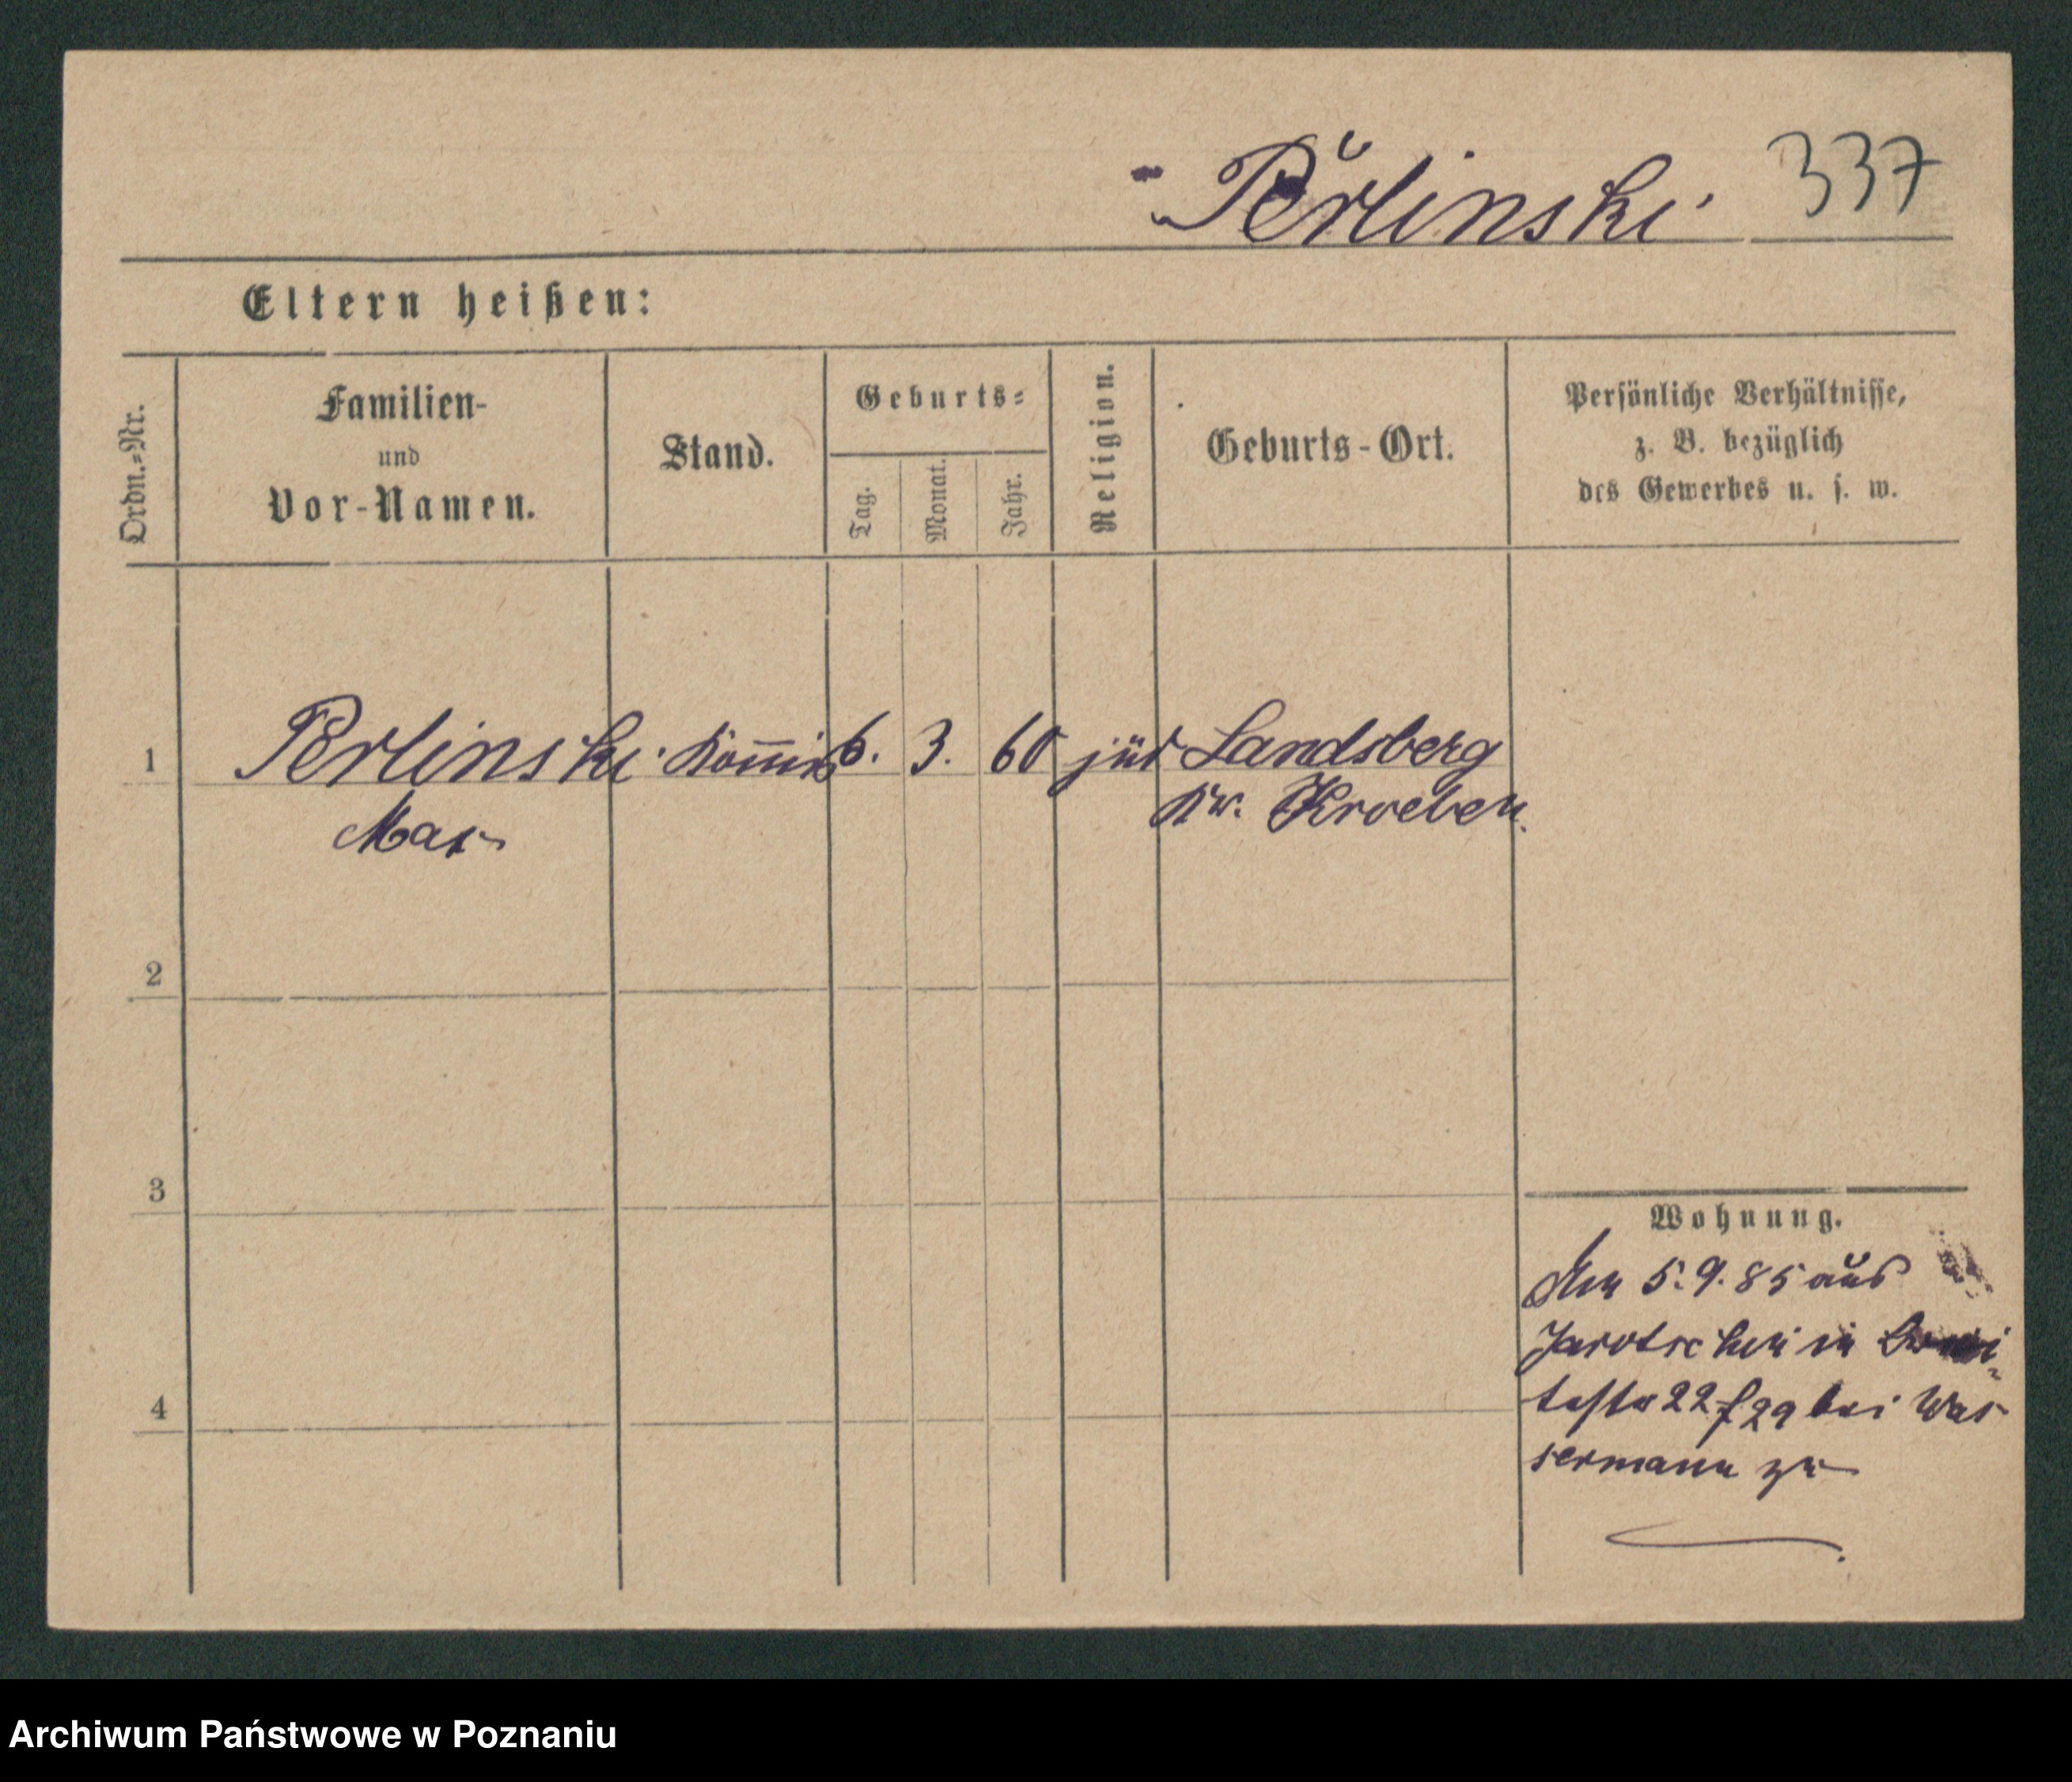 Perlinski 337
Eltern heißen:
Ordn.=Nr.
Familien-
und
Vor-Namen.
Stand.
Geburts=
Tag.
Monat.
Jahr.
Religion.
Geburts-Ort.
Persönliche Verhältnisse,
z. B. bezüglich
des Gewerbes u. s. w.
1 Perlinski Kom̅is 6. 3. 60 jüd Landsberg
Max Kr. Kroeben.
2
3
4
Wohnung.
Am 5.9.85 aus
Jarotschin in
22/29 bei Was
sermann zu
Archiwum Państwowe w Poznaniu